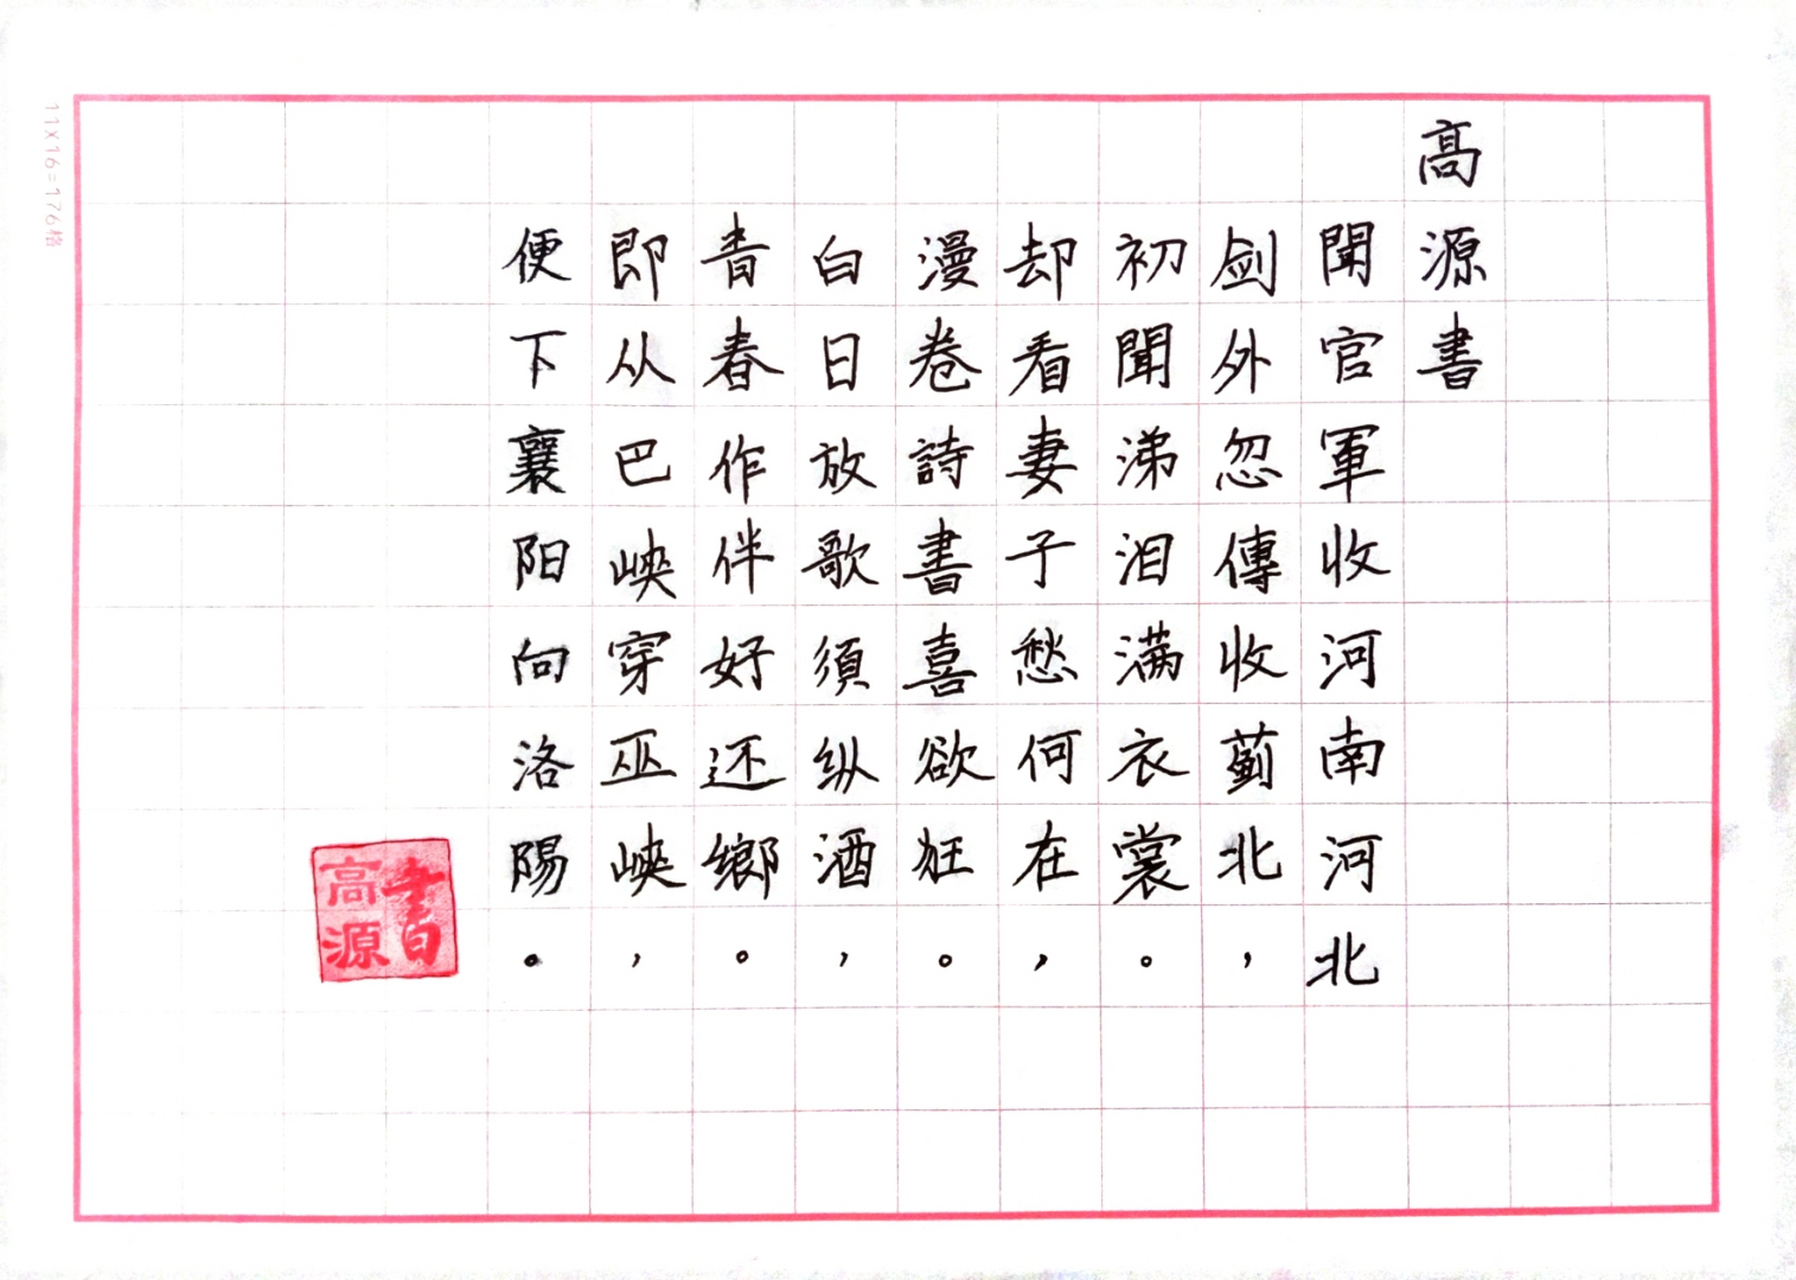 高源書
聞官軍收河南河北
剑外忽傳收蓟北，
初聞涕泪满衣裳。
却看妻子愁何在，
漫卷詩書喜欲狂。
白日放歌須纵酒，
青春作伴好还鄉。
即从巴峡穿巫峡，
便下襄阳向洛陽。
高源書
11X16=176格